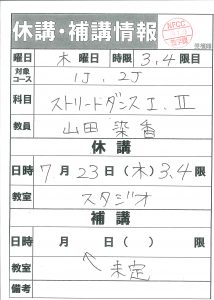 休講・補講情報
NFCC
曜日 木 曜日 時限 3,4 限目
対象コース 1J, 2J
科目 ストリートダンスⅠ, Ⅱ
教員 山田 染香
休講
日時 7 月 23 日 (木) 3,4 限
教室 スタジオ
補講
日時 月 日 ( ) 限
教室 未定
備考